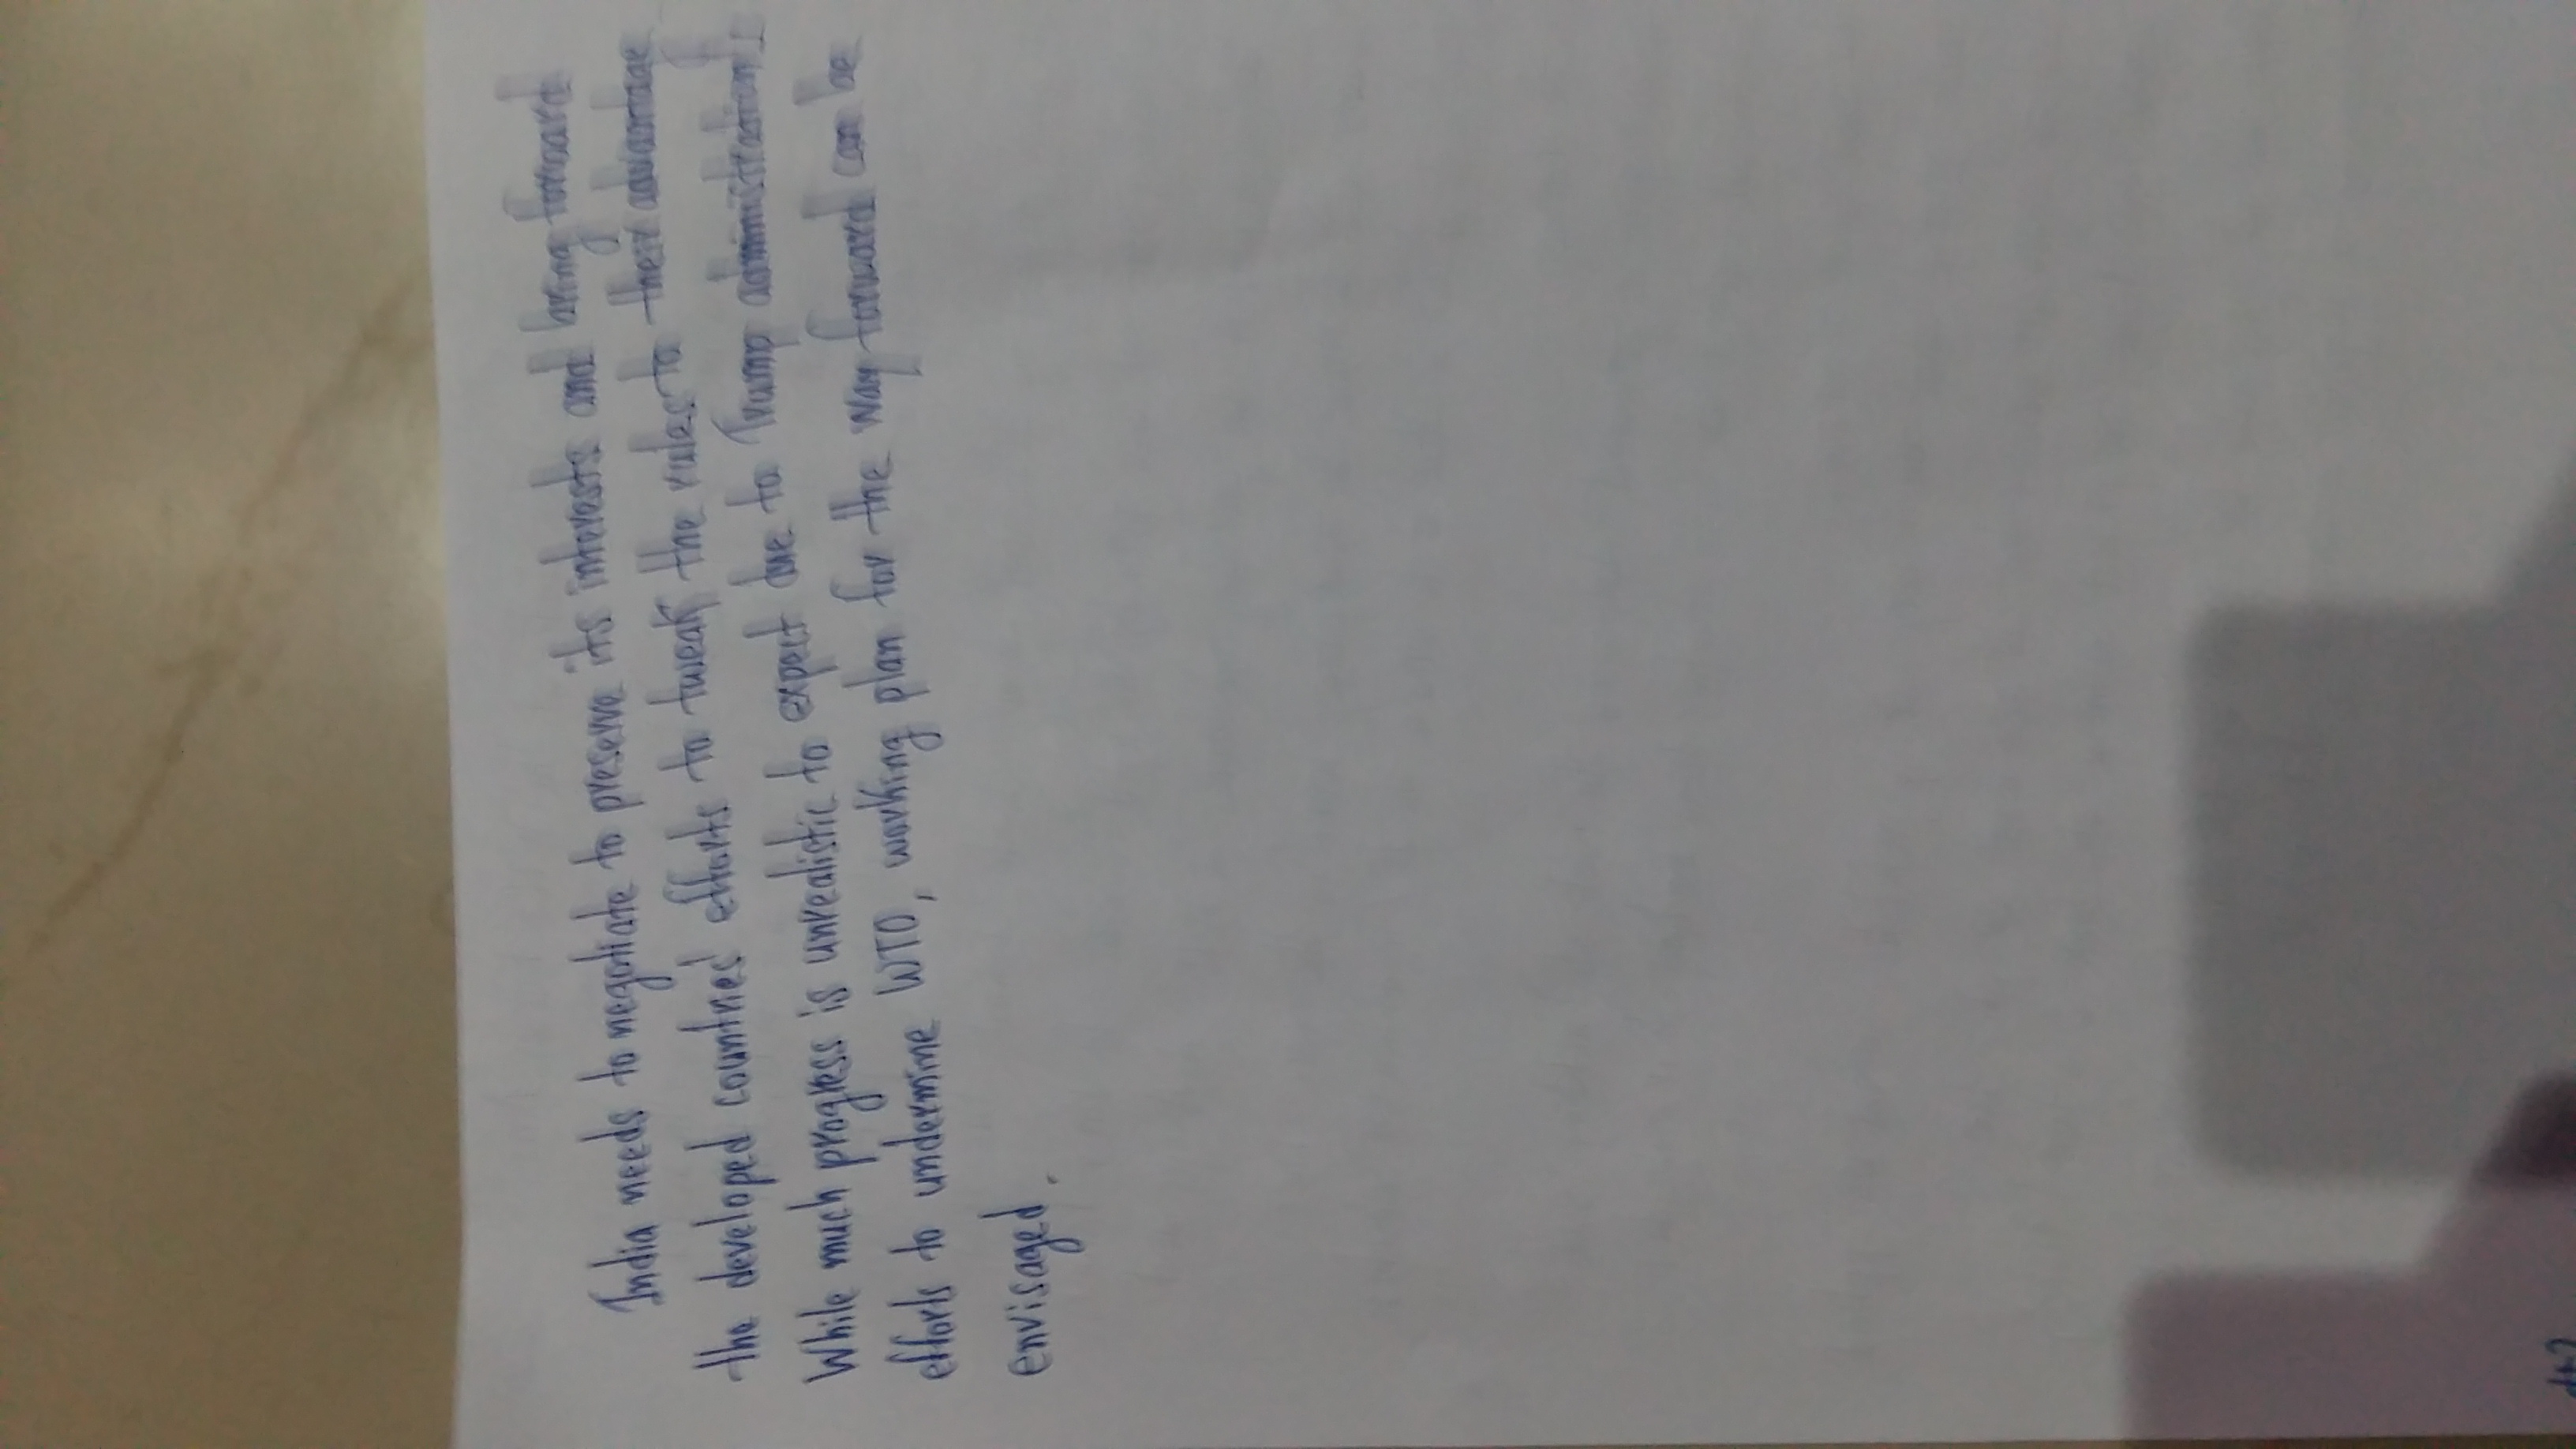 India needs to negotiate to preserve its interests and bring forward
the developed countries' efforts to tweak the rules to their advantage
While much progress is unrealistic to expect due to Trump administration's
efforts to undermine WTO, working plan for the way forward can be
envisaged.